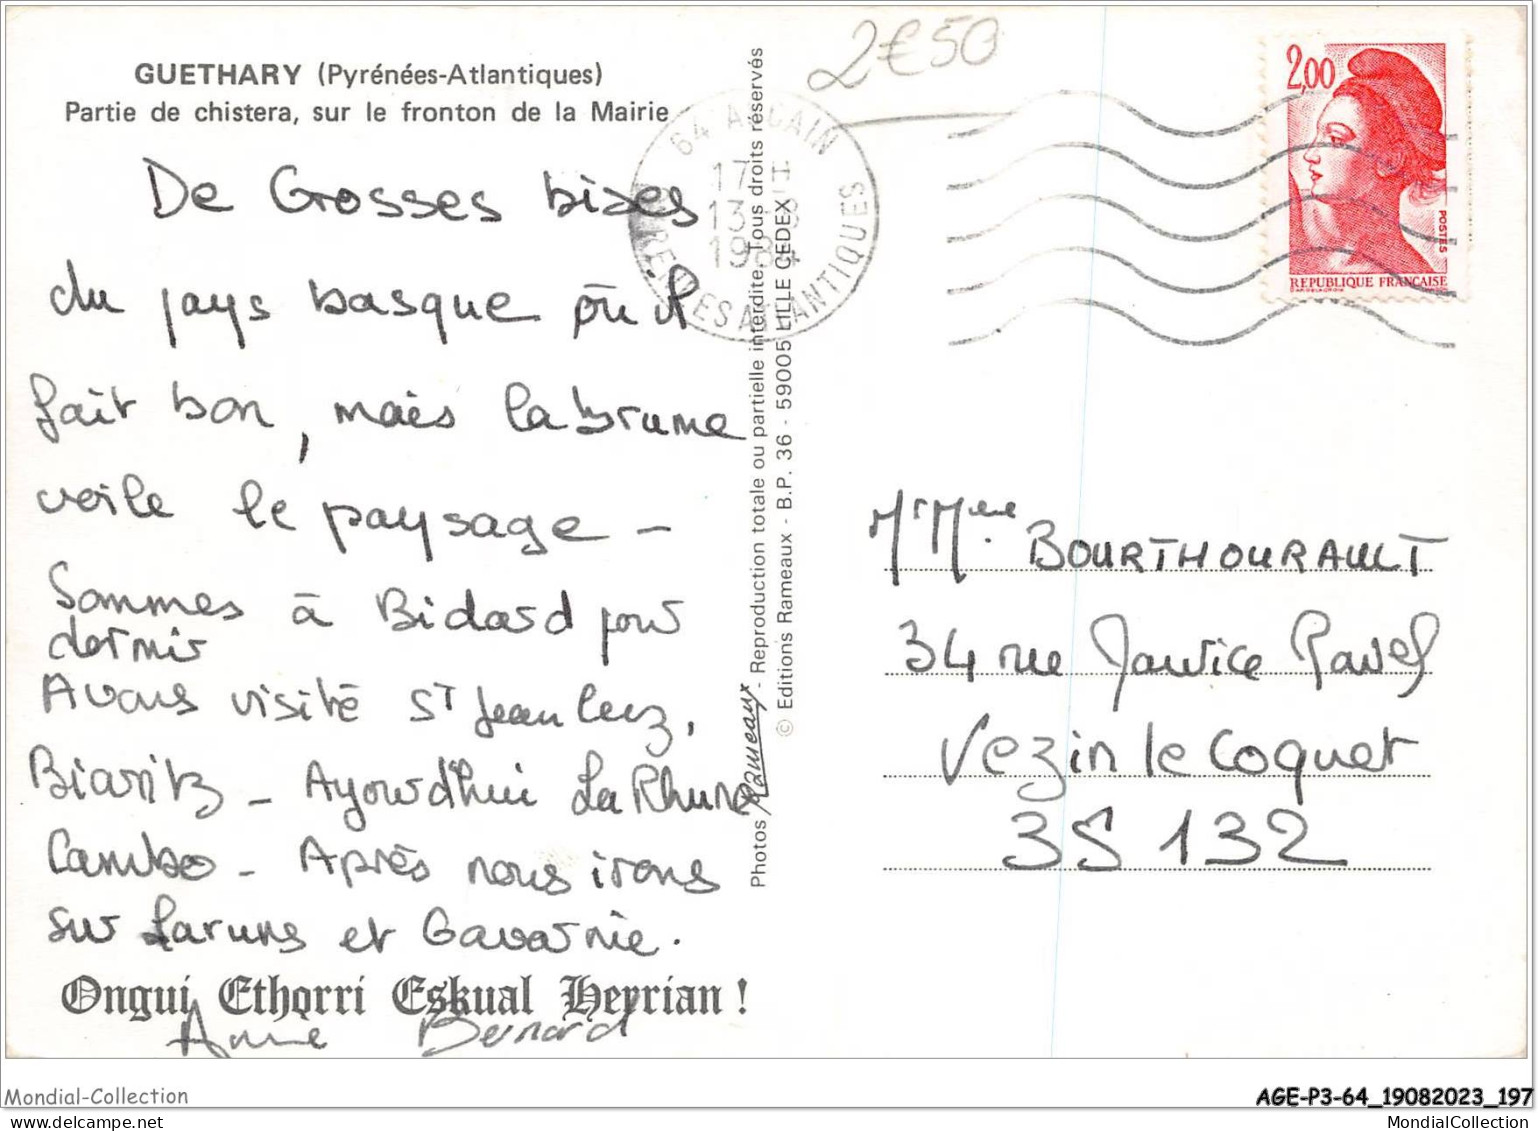 2€50
GUETHARY (Pyrénées-Atlantiques)
Partie de chistera, sur le fronton de la Mairie
De Grosses bises
du pays basque où il
fait bon, mais la brume
voile le paysage -
Sommes à Bidard pour
dormir
Avons visité St Jean Luz,
Biaritz - Ajourd'hui La Rhune
Cambo - Après nous irons
sur Laruns et Gavarnie.
Ongui Ethorri Eskual Herrian !
Anne Bernard
Photos Rameaux - Reproduction totale ou partielle interdite. Tous droits réservés
© Editions Rameaux - B.P. 36 - 59005 LILLE CEDEX
64 ASCAIN
17 H
13 -8
1984
PYRENEES ATLANTIQUES
2,00
POSTES
REPUBLIQUE FRANÇAISE
Mr Mme BOURTHOURAULT
34 rue Maurice Ravel
Vezin le Coquet
35 132
Mondial-Collection
AGE-P3-64_19082023_197
MondialCollection